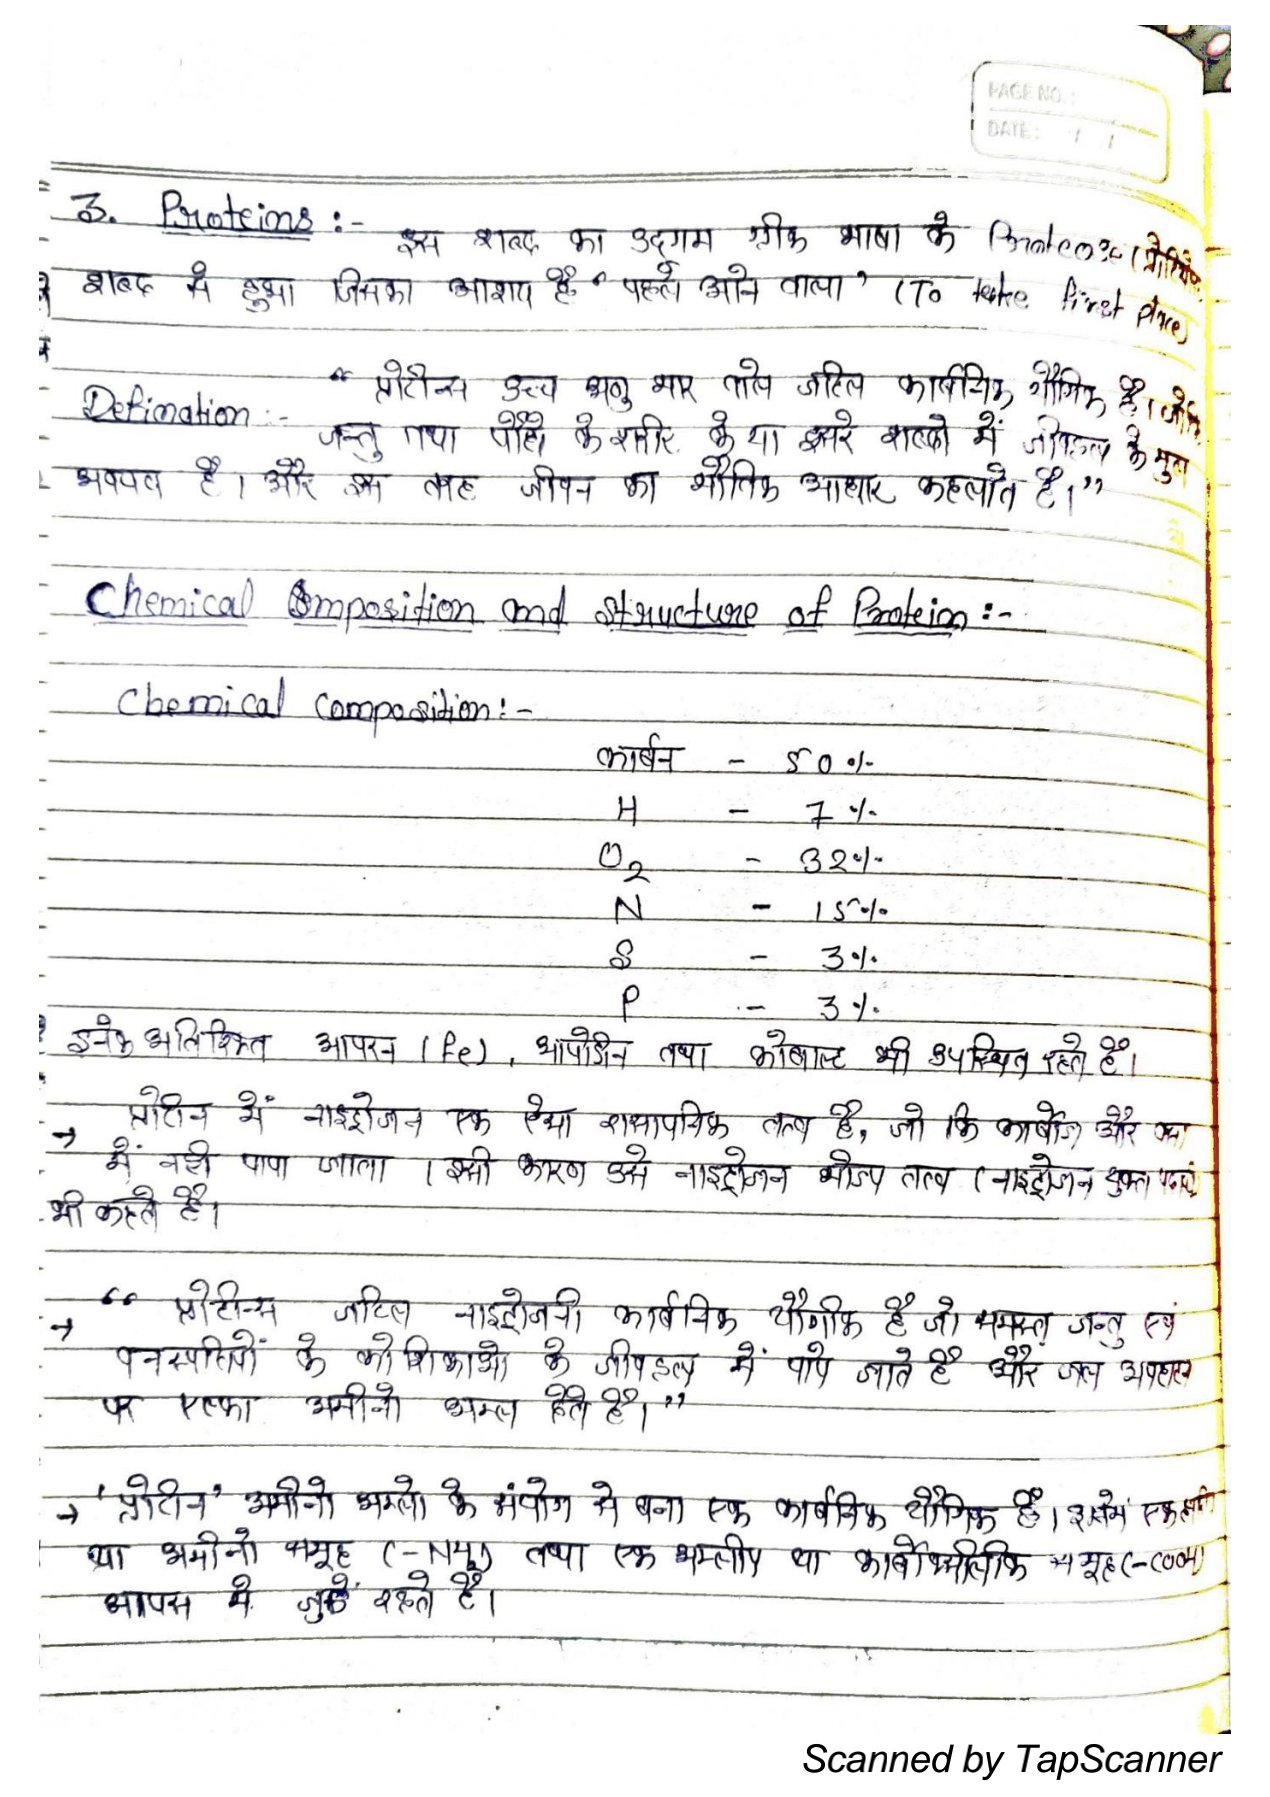 PAGE NO.:
DATE: / /
3. Proteins :- इस शब्द का उदगम ग्रीक भाषा के
शब्द से हुआ जिसका आशय है “पहले आने वाला” (To take first place)
“ प्रोटीन्स उच्च अणु भार वाले जटिल कार्बनिक यौगिक है। जोकि
Defination :- जन्तु तथा पौधो के शरीर के या दूसरे शब्दो में जीवद्रव्य के मुख्य
अवयव है। और इस तरह जीवन का भौतिक आधार कहलाते है।”
Chemical Composition and structure of Protein :-
Chemical Composition :-
कार्बन - 50%
H - 7%
O2 - 32%
N - 15%
S - 3%
P - 3%
इनके अतिरिक्त आयरन (fe), आयोडिन तथा कोबाल्ट भी उपस्थित रहते है।
→ प्रोटीन में नाइट्रोजन एक ऐसा रासायनिक तत्व है, जो कि कार्बोज और वसा
में नही पाया जाता। इसी कारण उसे नाइट्रोजन भोज्य तत्व (नाइट्रोजन युक्त पदार्थ
भी कहते है।
→ “ प्रोटीन्स जटिल नाइट्रोजनी कार्बनिक यौगीक है जो समस्त जन्तु एवं
वनस्पतियों के कोशिकाओ के जीवद्रव्य में पाये जाते है और जल अपघटन
पर एल्फा अमीनो अम्ल देते है।”
→ ‘प्रोटीन’ अमीनो अम्लो के संयोग से बना एक कार्बनिक यौगिक है। इसमें एक क्षारीय
या अमीनो समूह (-NH2) तथा एक अम्लीय या कार्बोक्सीलिक समूह (-COOH)
आपस मे जुड़े रहते है।
Scanned by TapScanner